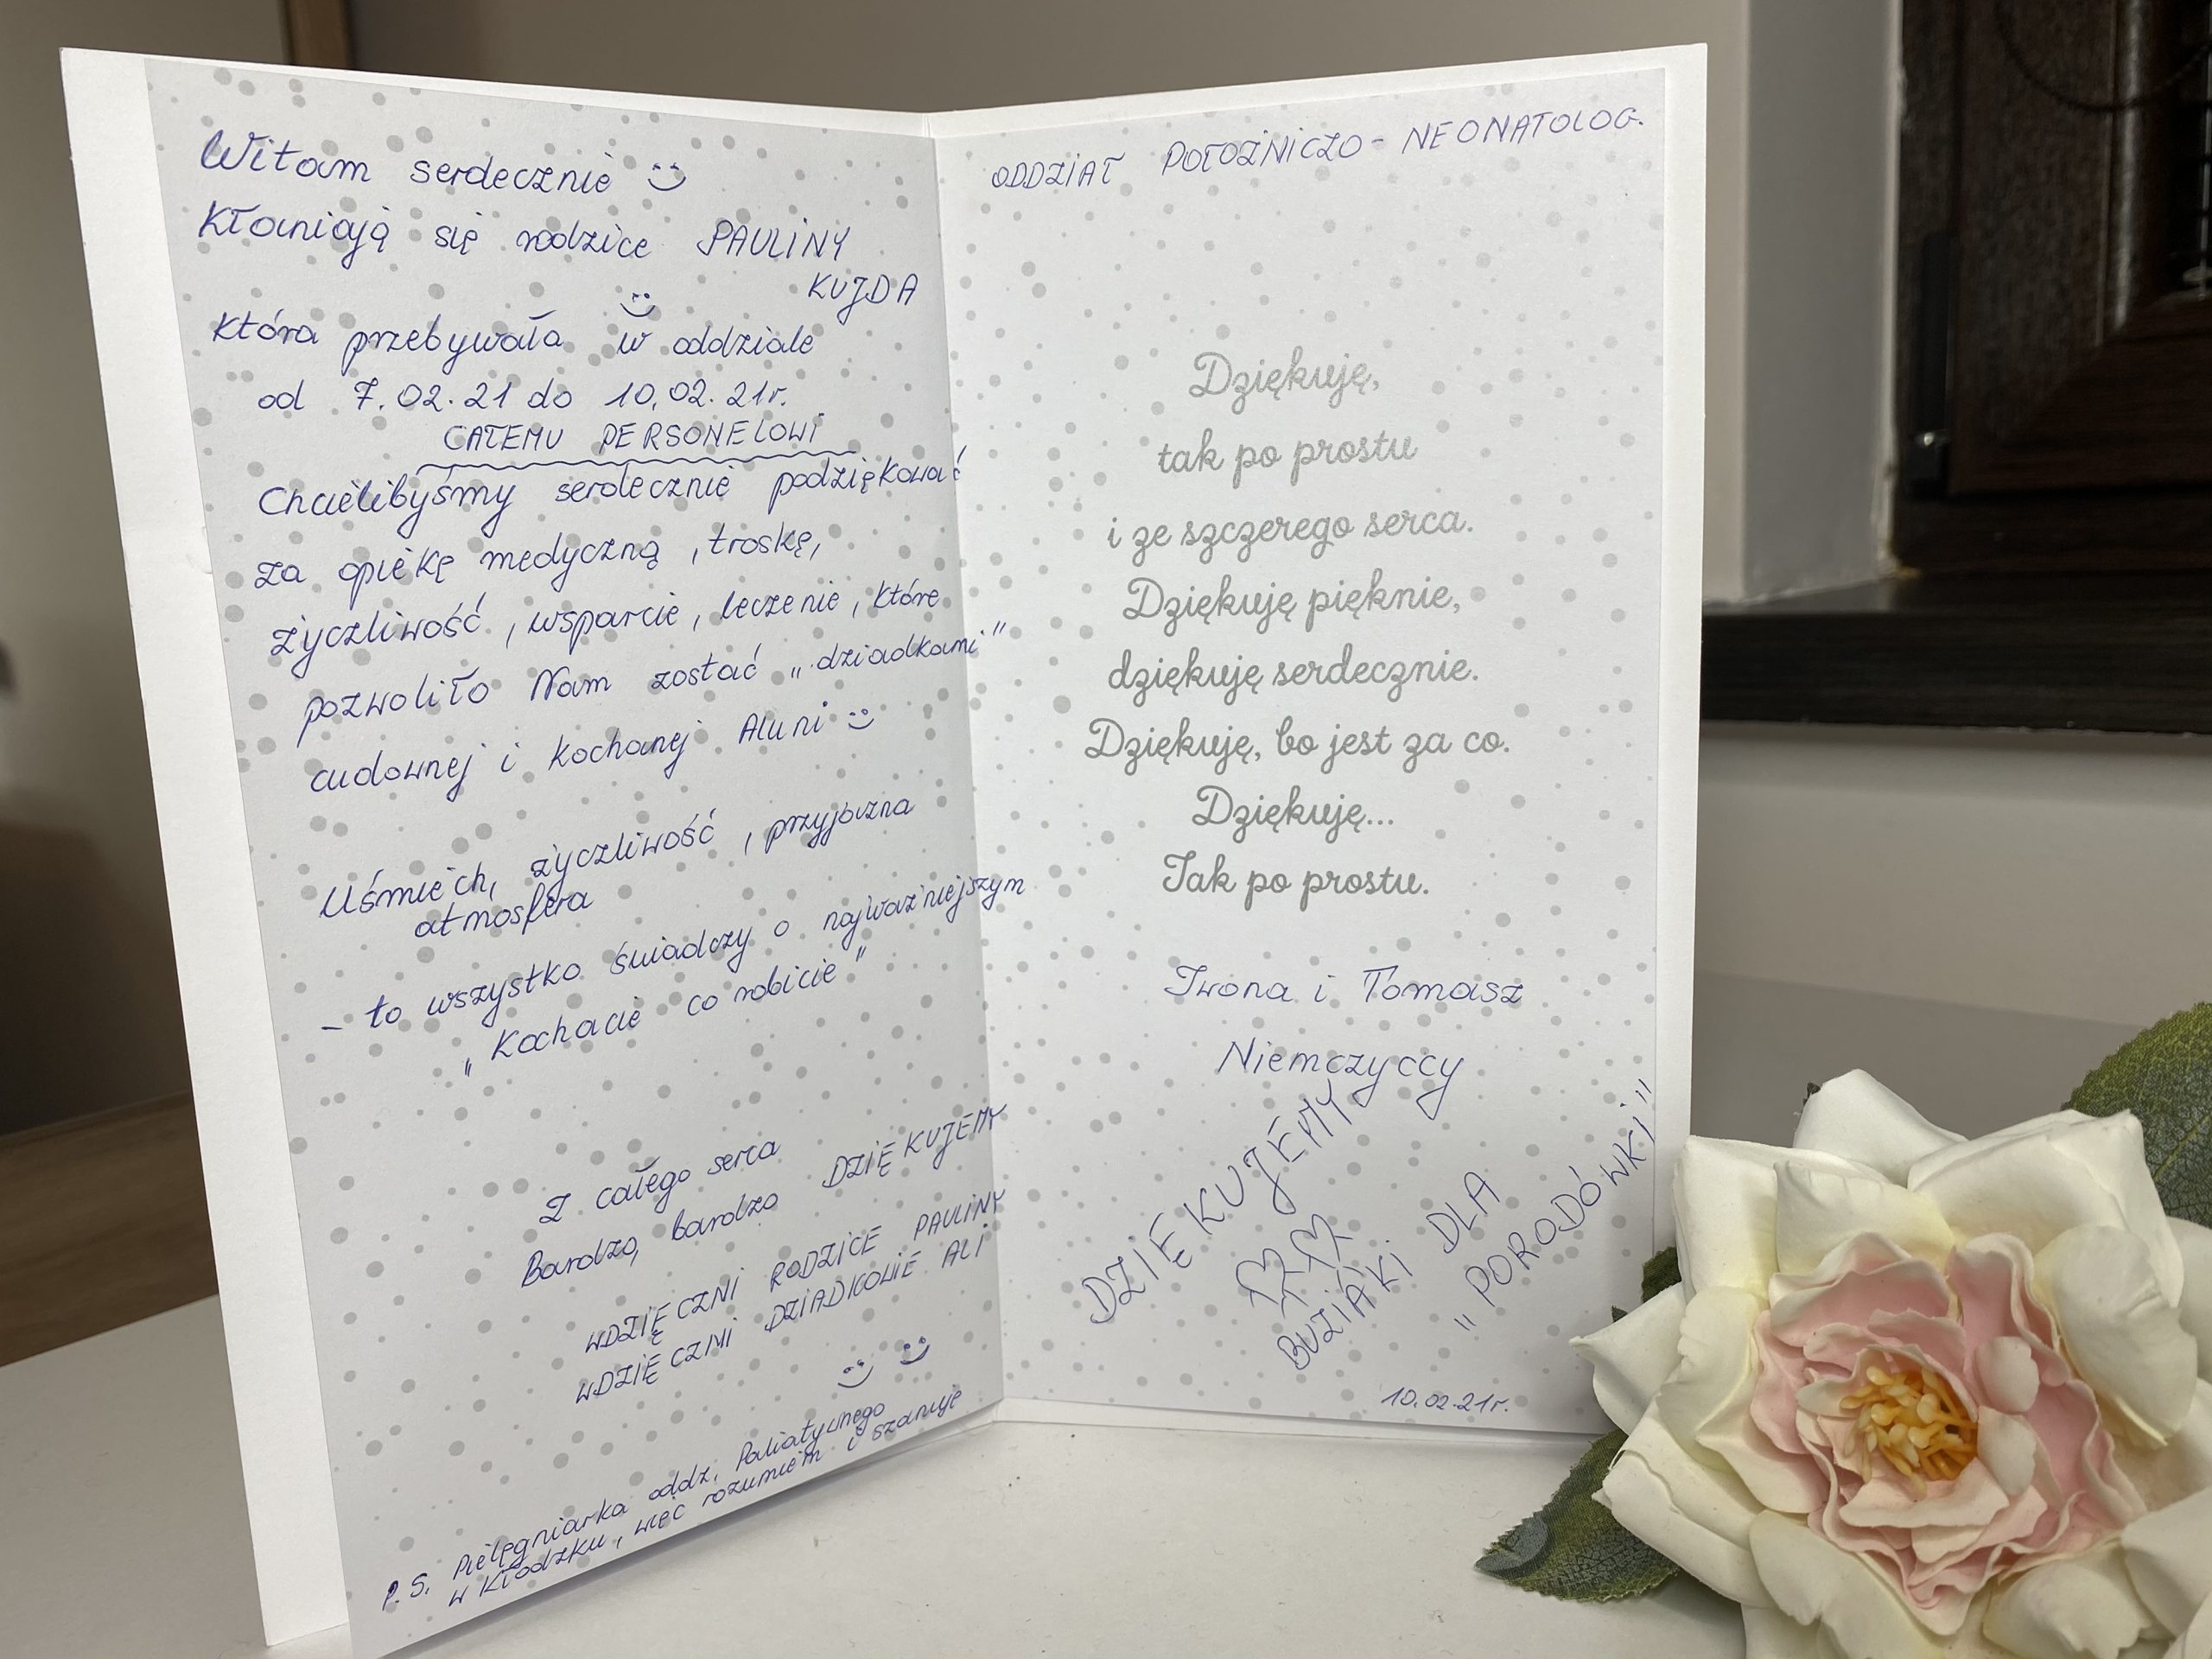 Witam serdecznie
Kłaniają się rodzice PAULINY
KUJDA
która przebywała w oddziale
od 7.02.21 do 10.02.21r.
CAŁEMU PERSONELOWI
Chcielibyśmy serdecznie podziękować
za opiekę medyczną, troskę,
życzliwość, wsparcie, leczenie, które
pozwoliło Nam zostać „dziadkami"
cudownej i kochanej Aluni
Uśmiech, życzliwość, przyjazna
atmosfera
- to wszystko świadczy o najważniejszym
„Kochacie co robicie"
Z całego serca
Bardzo, bardzo DZIĘKUJEMY
WDZIĘCZNI RODZICE PAULINY
WDZIĘCZNI DZIADKOWIE ALI
P.S. Pielęgniarka oddz. Paliatywnego
w Kłodzku, więc rozumiem i szanuję
ODDZIAŁ POŁOŻNICZO - NEONATOLOG.
Dziękuję,
tak po prostu
i ze szczerego serca.
Dziękuję pięknie,
dziękuję serdecznie.
Dziękuję, bo jest za co.
Dziękuję...
Tak po prostu.
Iwona i Tomasz
Niemczyccy
DZIĘKUJEMY
BUZIAKI DLA
„PORODÓWKI"
10.02.21r.